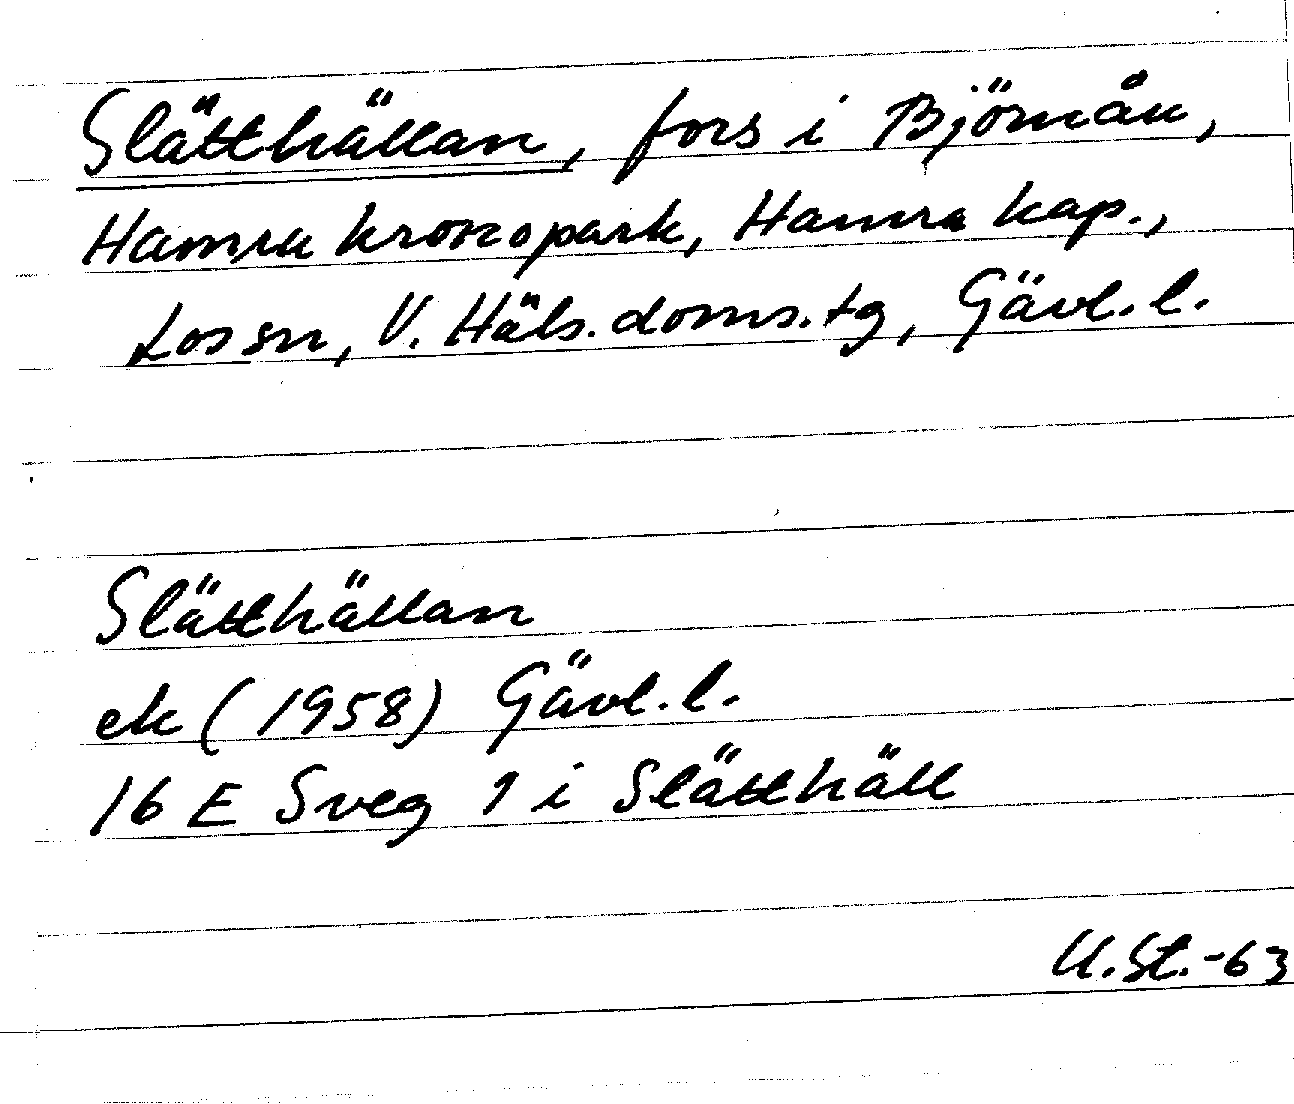 Slätthällan, fors i Björnån,
Hamra kronopark, Hamra kap.,
Los sn, V. Häls. doms. tg, Gävl. l.
Slätthällan
ek (1958) Gävl. l.
16 E Sveg 1 i Slätthäll
U. St. -63